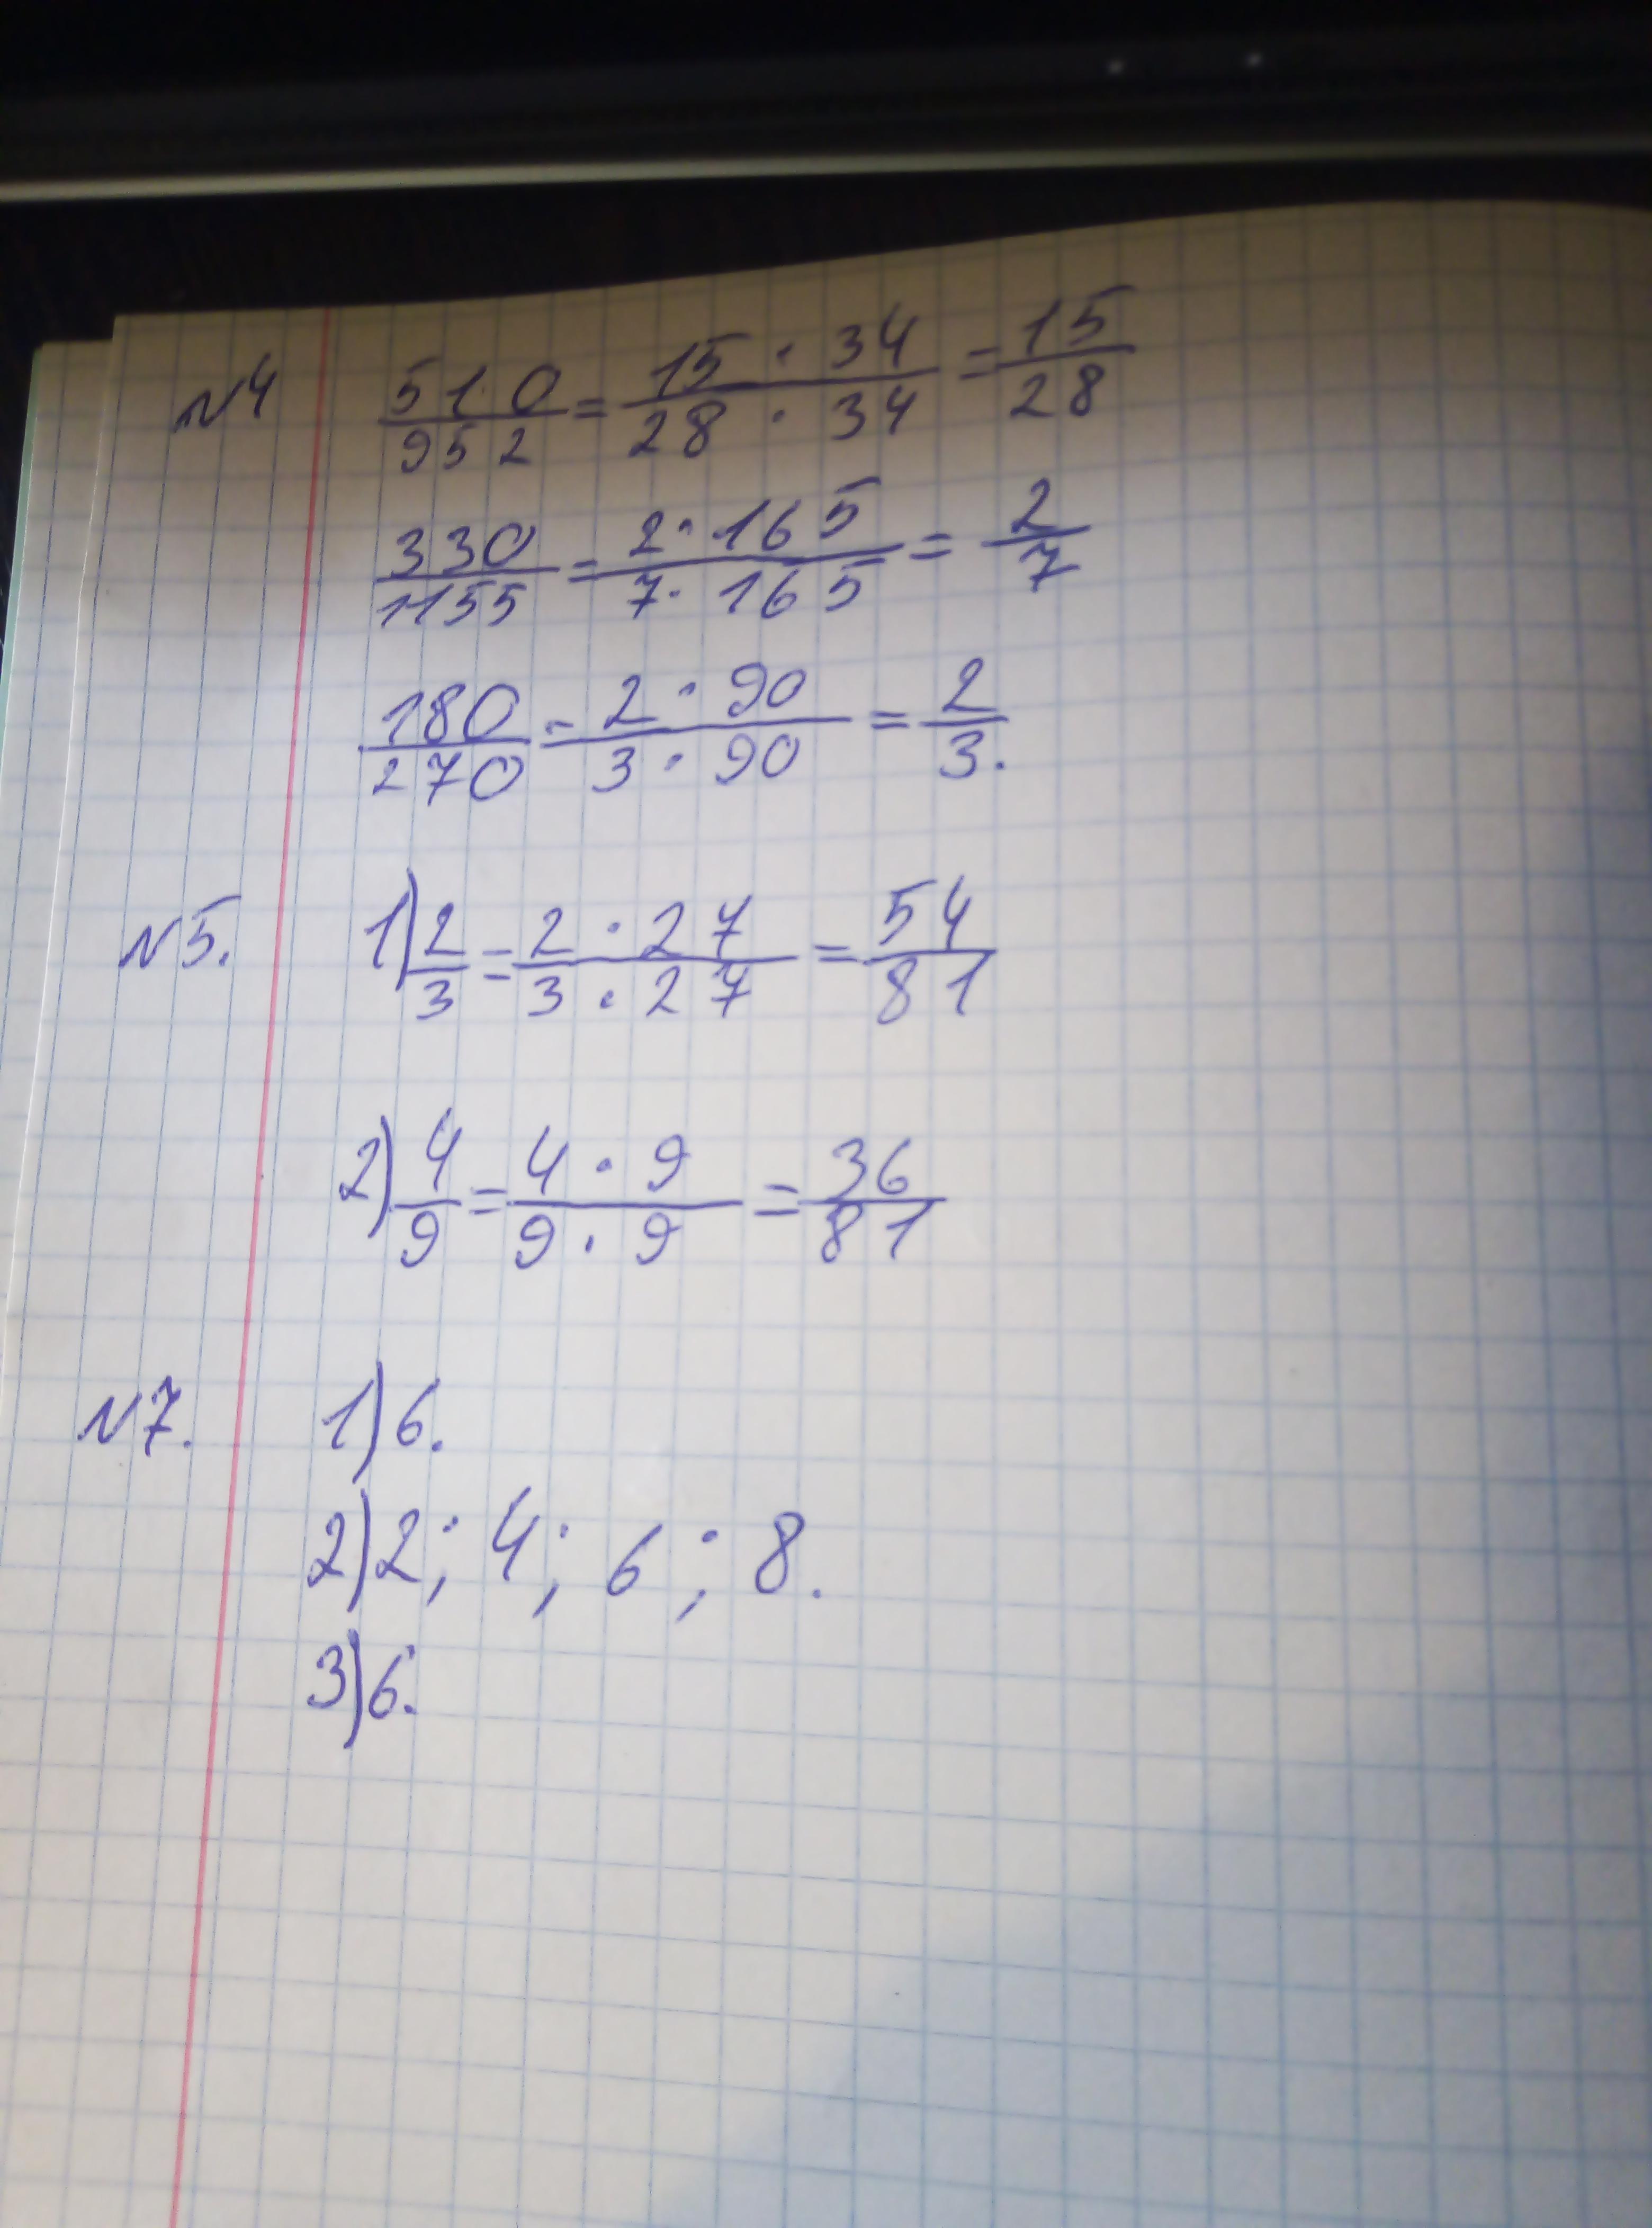 №4 510/952 = 15 · 34/28 · 34 = 15/28
330/1155 = 2 · 165/7 · 165 = 2/7
180/270 = 2 · 90/3 · 90 = 2/3.
№5. 1) 2/3 = 2 · 27/3 · 27 = 54/81
2) 4/9 = 4 · 9/9 · 9 = 36/81
№7. 1) 6.
2) 2; 4; 6; 8.
3) 6.